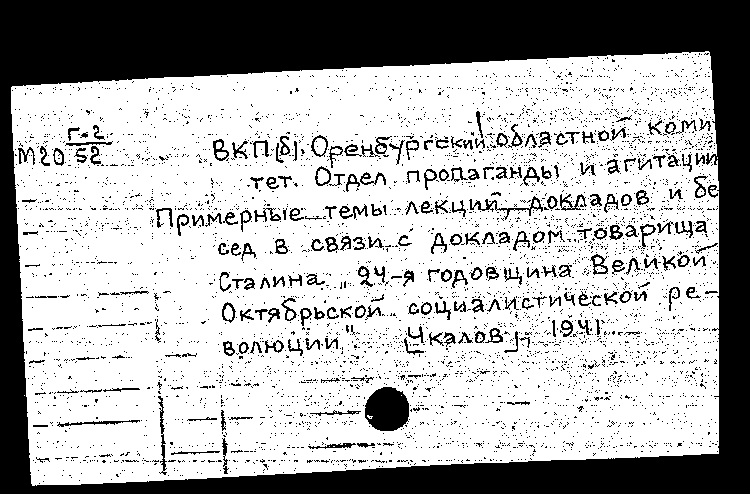 М20 Г-2/52
ВКП(б). Оренбургский областной коми
тет. Отдел пропаганды и агитации
Примерные темы лекций, докладов и бе
сед в связи с докладом товарища
Сталина „24-я годовщина Великой
Октябрьской социалистической ре-
волюции". [Чкалов], 1941.